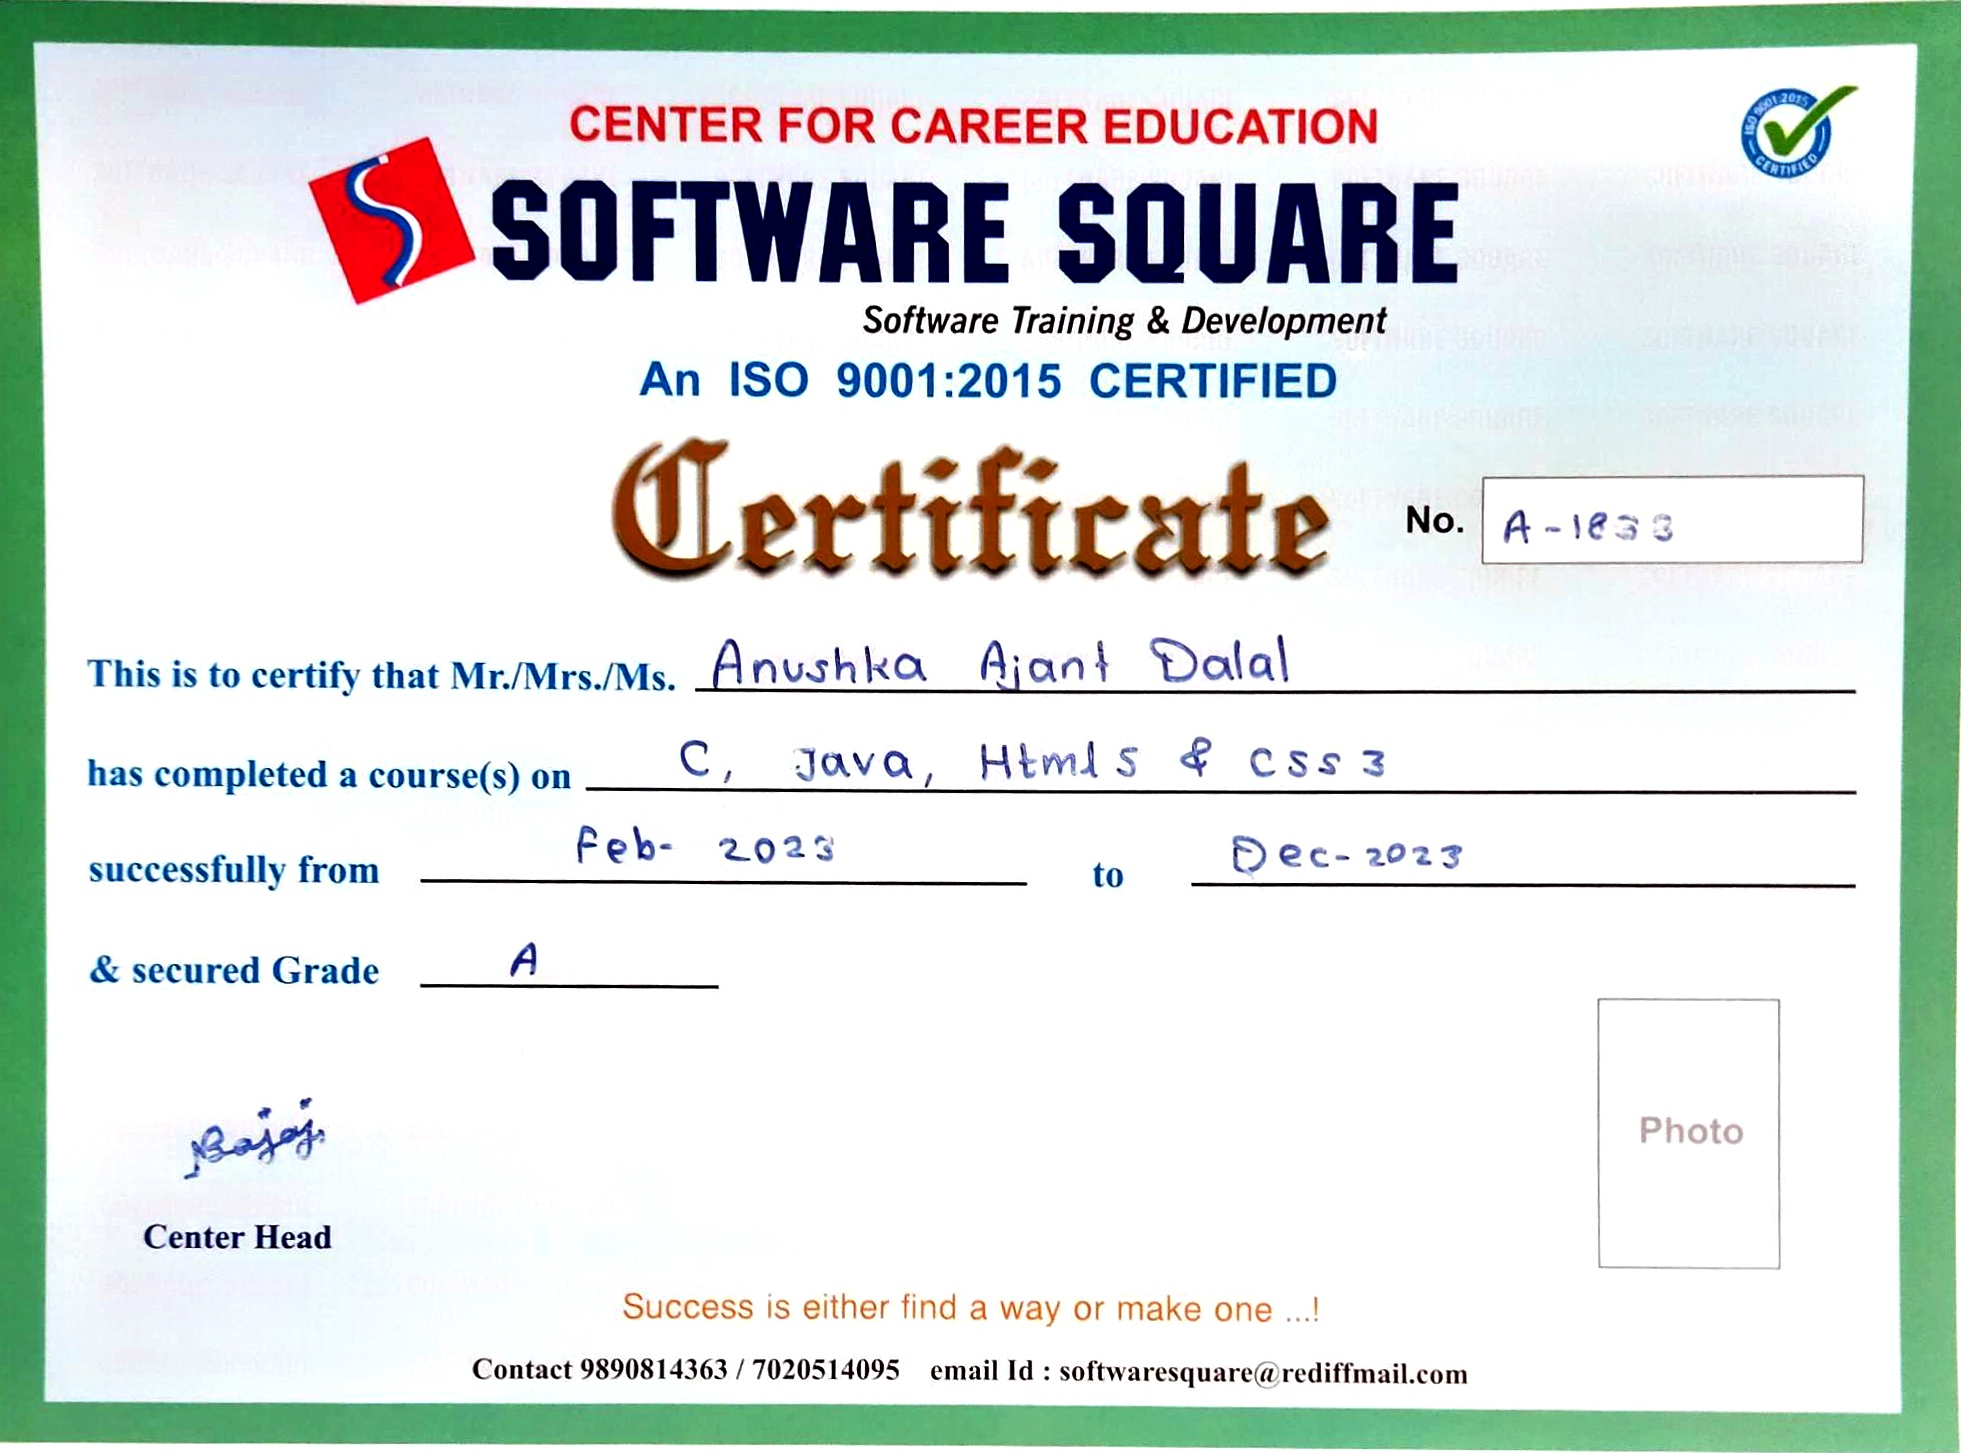 CENTER FOR CAREER EDUCATION
ISO 9001:2015 CERTIFIED
SOFTWARE SQUARE
Software Training & Development
An ISO 9001:2015 CERTIFIED
Certificate
No. A-1833
This is to certify that Mr./Mrs./Ms. Anushka Ajant Dalal
has completed a course(s) on C, Java, Html5 & CSS3
successfully from Feb- 2023 to Dec-2023
& secured Grade A
Bajaj
Photo
Center Head
Success is either find a way or make one ...!
Contact 9890814363 / 7020514095 email Id : softwaresquare@rediffmail.com